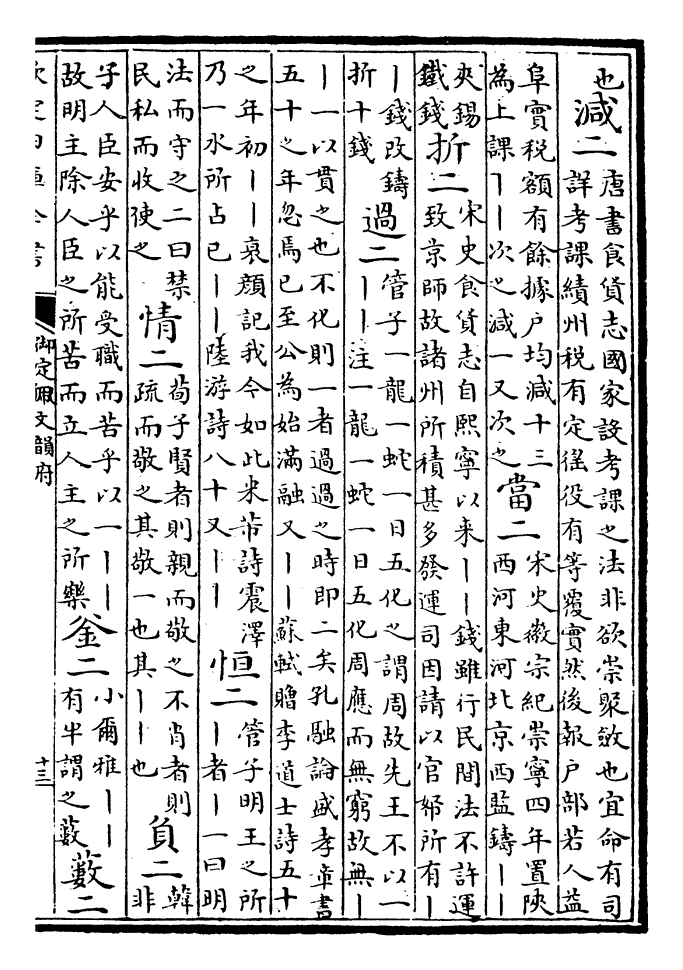 也減二唐書食貨志國家設考課之法非欲崇聚斂也宜命有司
詳考課績州稅有定徭役有等覆實然後報户部若人益
阜實稅額有餘據户均減十三
為上課丨丨次之減一又次之
當二宋史徽宗紀崇寧四年置陝
西河東河北京西監鑄丨丨
夾錫
鐵錢
折二宋史食貨志自熙寧以来丨丨錢雖行民間法不許運
致京師故諸州所積甚多發運司因請以官帑所有丨
丨錢改鑄
折十錢
過二管子一龍一蛇一日五化之謂周故先王不以一
丨丨注一龍一蛇一日五化周應而無窮故無丨
丨一以貫之也不化則一者過過之時即二矣孔融論盛孝章書
五十之年忽焉已至公為始滿融又丨丨蘇軾贈李道士詩五十
之年初丨丨哀顔記我今如此米芾詩震澤
乃一水所占已丨丨陸游詩八十又丨丨
恒二管子明王之所
丨者丨一曰明
法而守之二曰禁
民私而收使之
情二荀子賢者則親而敬之不肖者則
疏而敬之其敬一也其丨丨也
負二韓
非
子人臣安乎以能受職而苦乎以一丨丨
故明主除人臣之所苦而立人主之所樂
釜二小爾雅丨丨
有半謂之藪
藪二
欽定四庫全書
御定佩文韻府
十三